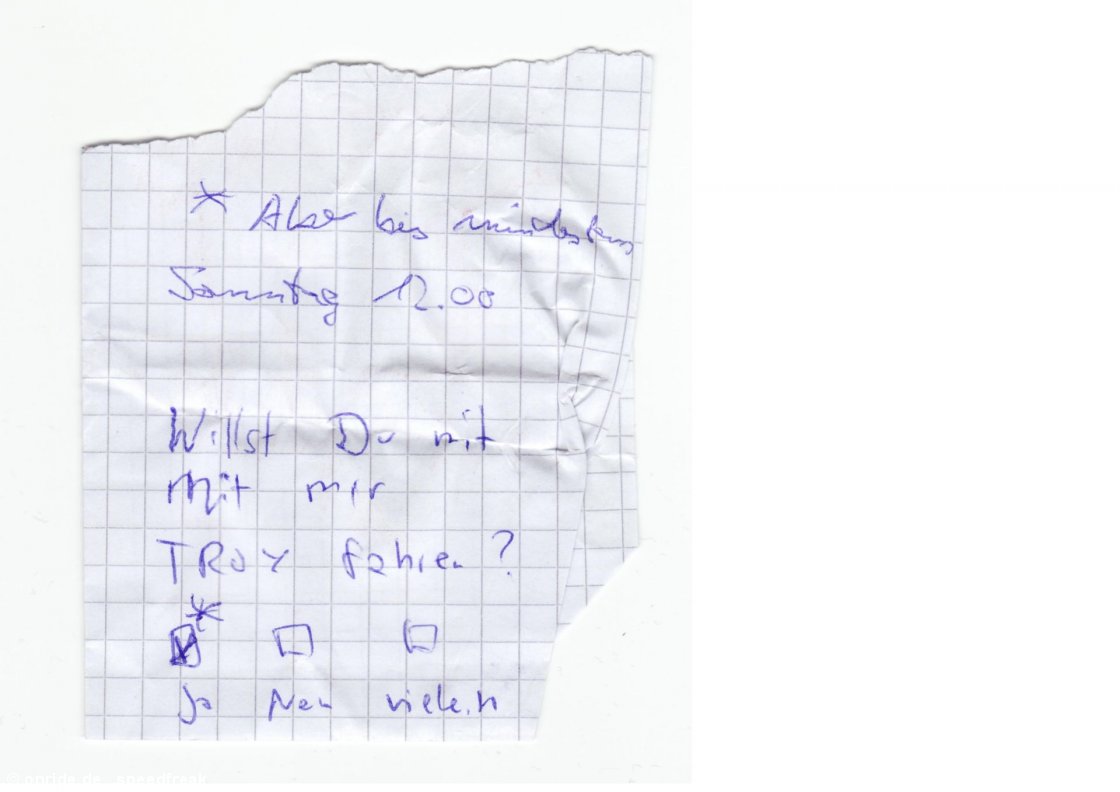 * Aber bis mindestens
Sonntag 12.00
Willst Du mit
Mit mir
TROY fahren ?
*
Ja Nein vielleicht
© onride.de speedfreak